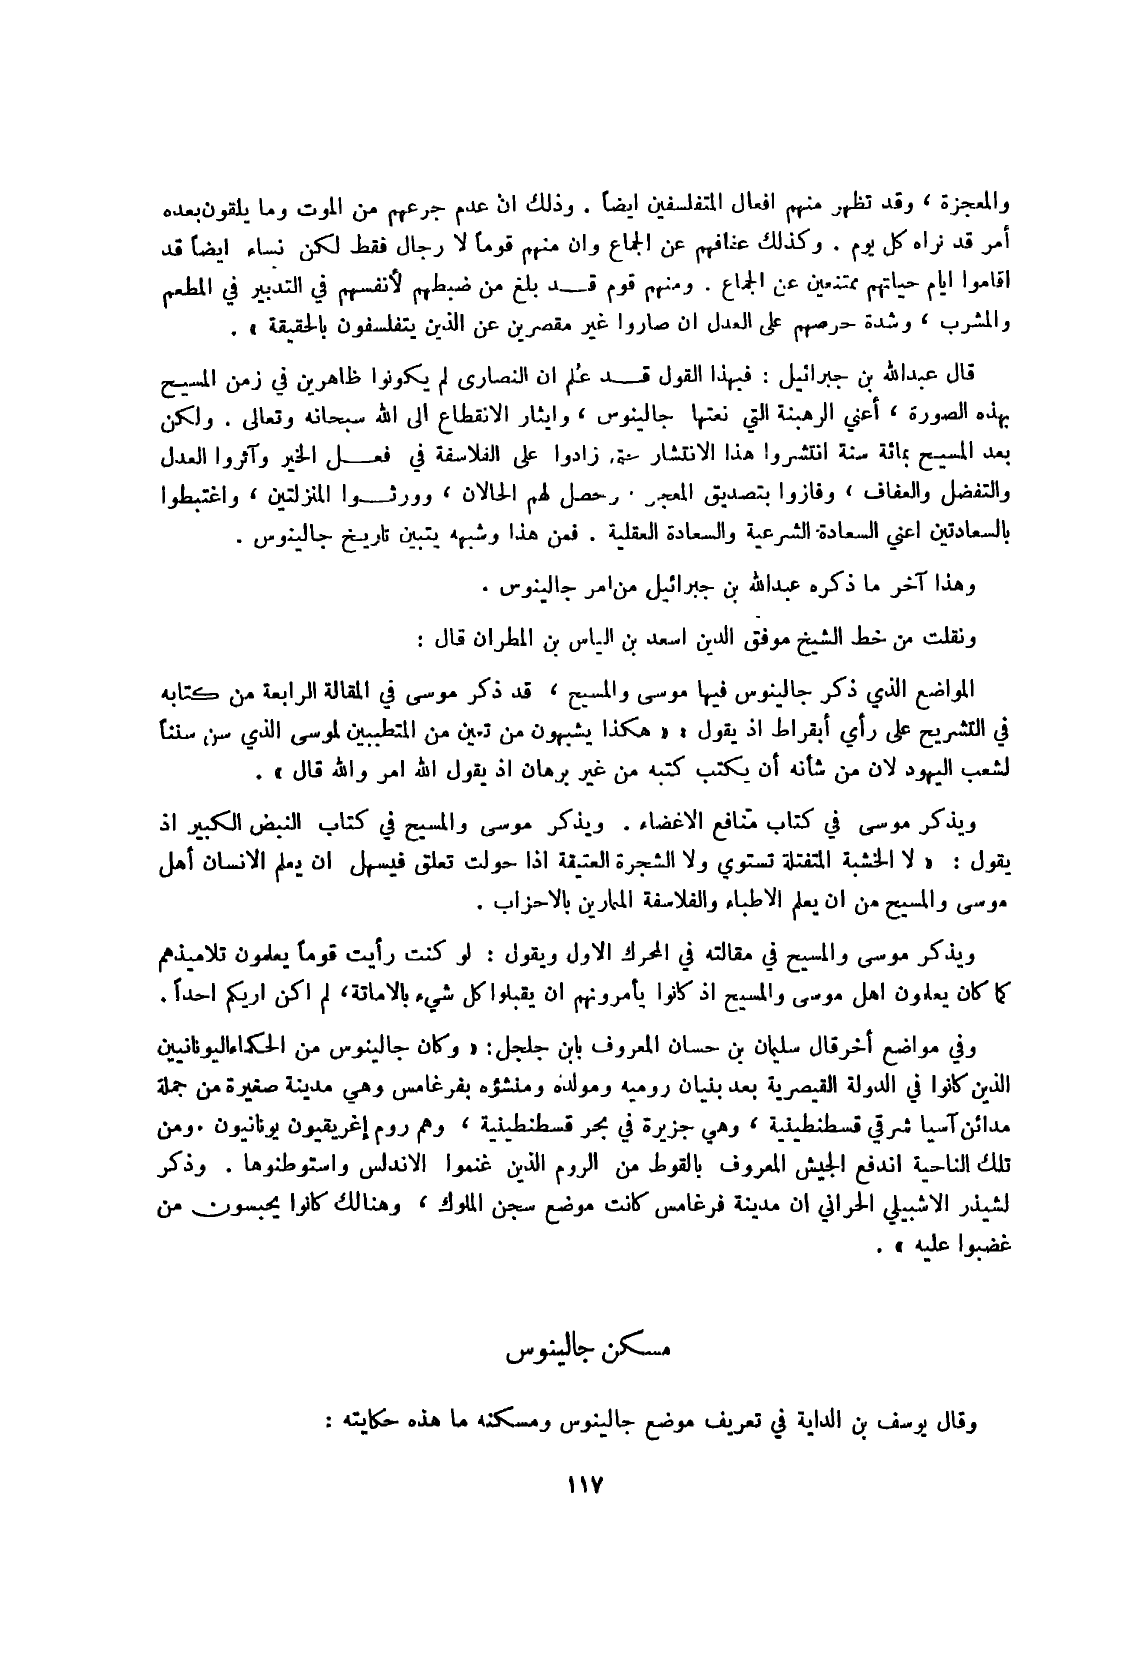 والمعجزة ، وقد تظهر منهم افعال المتفلسفين ايضاً . وذلك انّ عدم جزعهم من الموت وما يلقون بعده
أمر قد نراه كل يوم . وكذلك عفافهم عن الجماع وان منهم قوماً لا رجال فقط لكن نساء ايضاً قد
اقاموا ايام حياتهم ممتنعين عن الجماع . ومنهم قوم قــد بلغ من ضبطهم لأنفسهم في التدبير في المطعم
والمشرب ، وشدة حرصهم على العدل ان صاروا غير مقصرين عن الذين يتفلسفون بالحقيقة » .
قال عبدالله بن جبرائيل : فبهذا القول قــد عُلم ان النصارى لم يكونوا ظاهرين في زمن المسيح
بهذه الصورة ، أعني الرهبنة التي نعتها جالينوس ، وايثار الانقطاع الى الله سبحانه وتعالى . ولكن
بعد المسيح بمائة سنة انتشروا هذا الانتشار حتى زادوا على الفلاسفة في فعــل الخير وآثروا العدل
والتفضل والعفاف ، وفازوا بتصديق المعجز وحصل لهم الحالان ، وورثــوا المنزلتين ، واغتبطوا
بالسعادتين اعني السعادة الشرعية والسعادة العقلية . فمن هذا وشبهه يتبين تاريخ جالينوس .
وهذا آخر ما ذكره عبدالله بن جبرائيل من امر جالينوس .
ونقلت من خط الشيخ موفق الدين اسعد بن الياس بن المطران قال :
المواضع الذي ذكر جالينوس فيها موسى والمسيح ، قد ذكر موسى في المقالة الرابعة من كتابه
في التشريح على رأي أبقراط اذ يقول : « هكذا يشبهون من تعين من المتطببين لموسى الذي سن سنناً
لشعب اليهود لان من شأنه أن يكتب كتبه من غير برهان اذ يقول الله امر والله قال » .
ويذكر موسى في كتاب منافع الاعضاء . ويذكر موسى والمسيح في كتاب النبض الكبير اذ
يقول : « لا الخشبة المتفتلة تستوي ولا الشجرة العتيقة اذا حولت تعلق فيسهل ان يعلم الانسان أهل
موسى والمسيح من ان يعلم الاطباء والفلاسفة المارين بالاحزاب .
ويذكر موسى والمسيح في مقالته في المحرك الاول ويقول : لو كنت رأيت قوماً يعلمون تلاميذهم
كما كان يعلمون اهل موسى والمسيح اذ كانوا يأمرونهم ان يقبلوا كل شيء بالاماتة، لم اكن اريكم احداً .
وفي مواضع أخر قال سليمان بن حسان المعروف بابن جلجل: « وكان جالينوس من الحكماء اليونانيين
الذين كانوا في الدولة القيصرية بعد بنيان روميه ومولده ومنشؤه بفرغامس وهي مدينة صغيرة من جملة
مدائن آسيا شرقي قسطنطينية ، وهي جزيرة في بحر قسطنطينية ، وهم روم إغريقيون يونانيون . ومن
تلك الناحية اندفع الجيش المعروف بالقوط من الروم الذين غنموا الاندلس واستوطنوها . وذكر
لشيذر الاشبيلي الحراني ان مدينة فرغامس كانت موضع سجن الملوك ، وهنالك كانوا يحبسون من
غضبوا عليه » .
مسكن جالينوس
وقال يوسف بن الداية في تعريف موضع جالينوس ومسكنه ما هذه حكايته :
١١٧